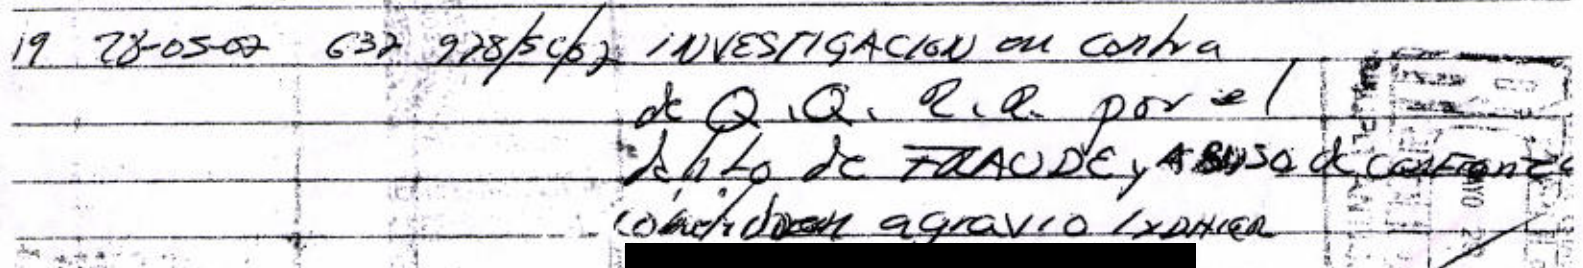 19 28-05-07 637 978/SC/07 INVESTIGACION en contra
de Q.Q. R.R. por el
delito de FRAUDE, ABUSO de CONFIANZA
cometido en agravio